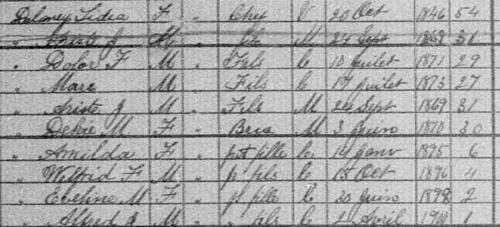 Delmey Lidea F " Chef V 20 Oct 1846 54
" J M " M 24 Sept 31
" Dolor F M " Fils C 10 Juilet 1871 29
" Marc M " Fils C 17 juilet 1873 27
" Ariste J M " Fils M 24 Sept 1869 31
" M F " Bru M 3 Juin 1870 30
" Amilda F " pet fille C 14 Janv 1895 6
" Wilfrid F M " p fils C 15 Oct 1896 4
" M F " p fille C 20 Juin 1898 2
" Alfred M " " fils C 2 Avril 1900 1